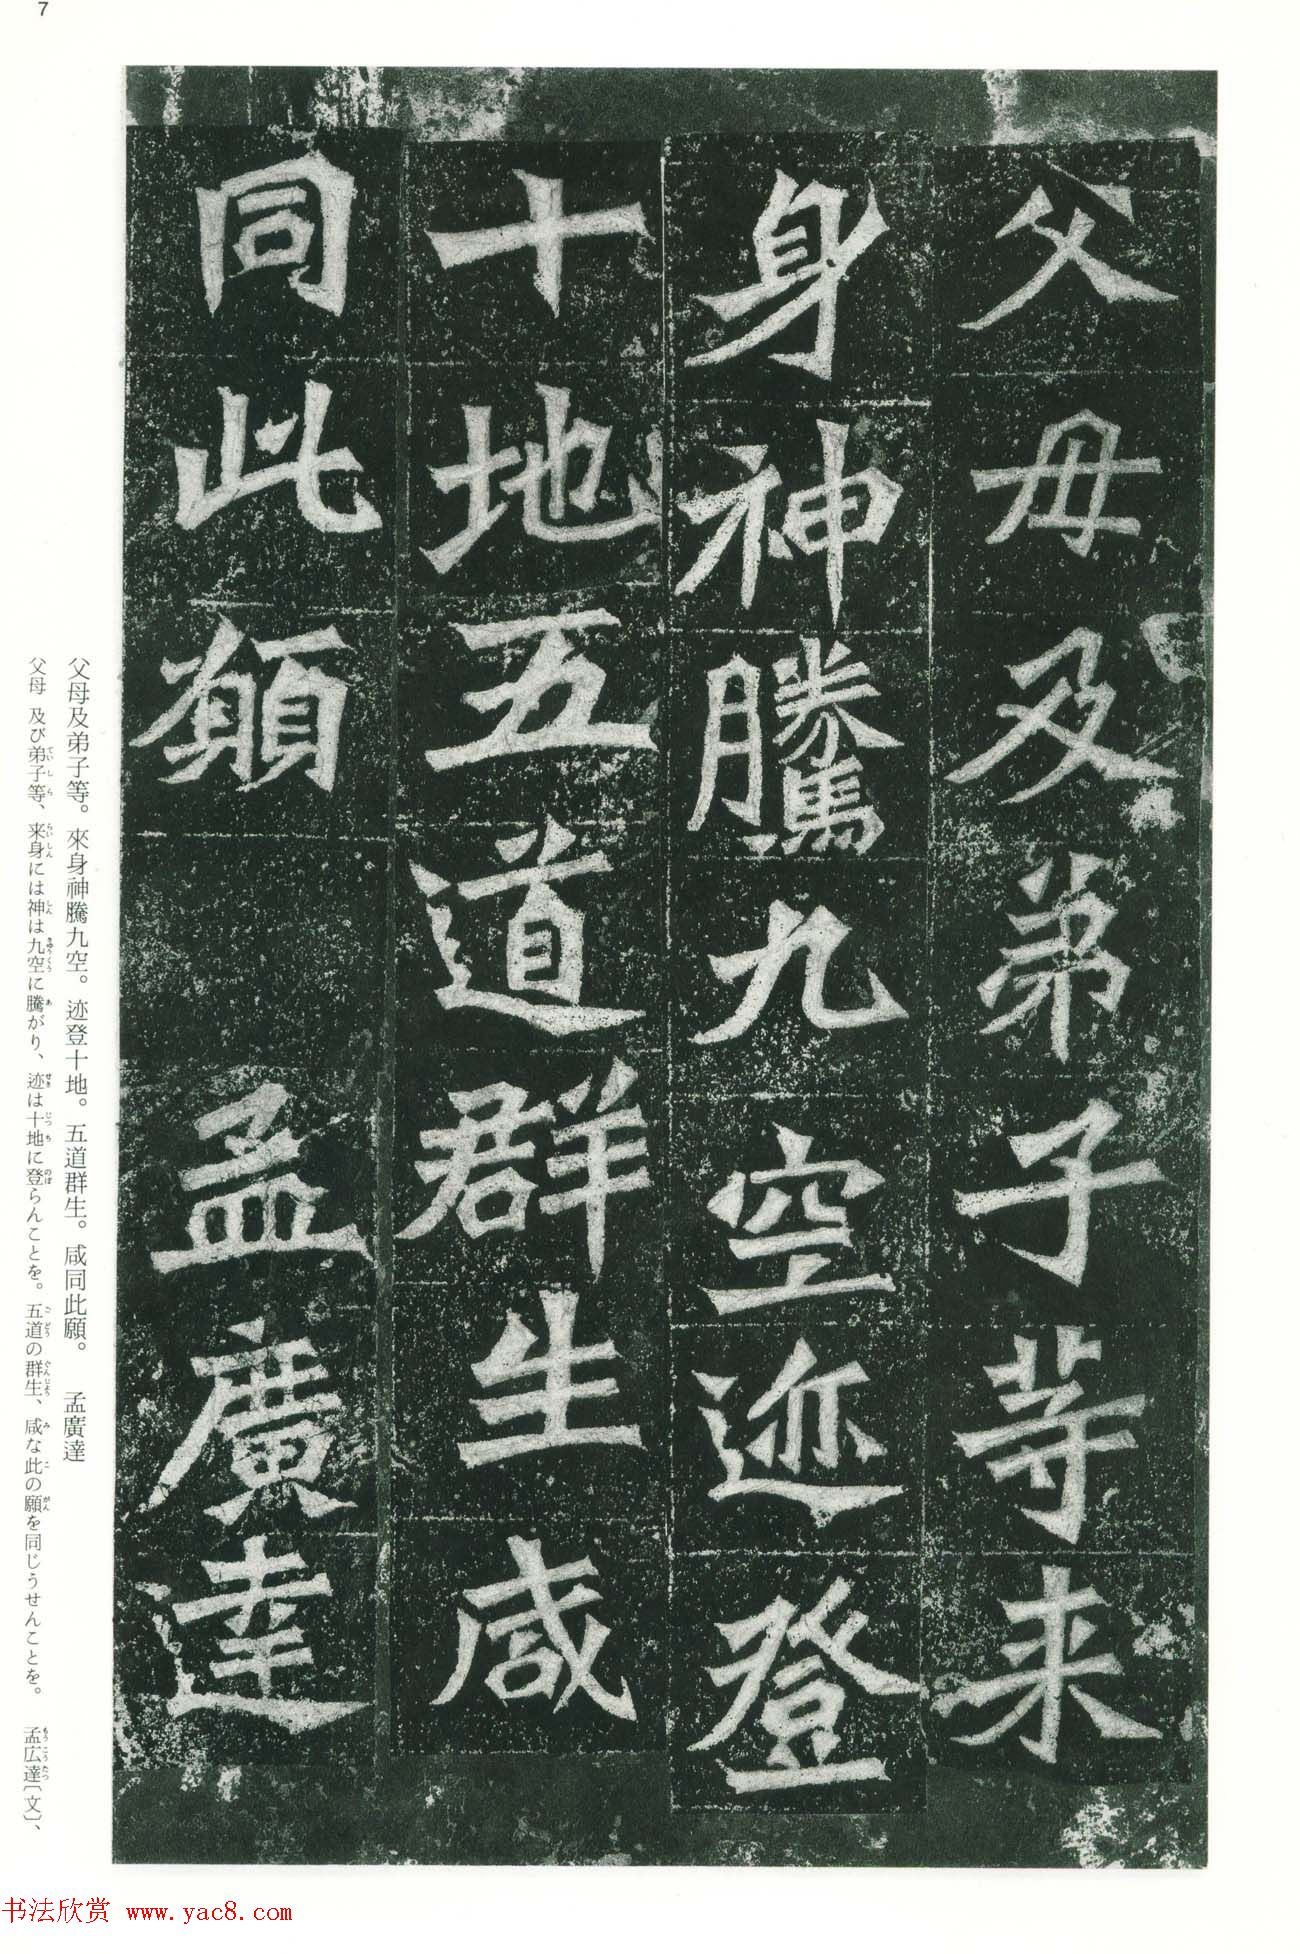 7
父母及弟子等来
身神騰九空迹登
十地五道群生咸
同此願 孟廣達
父母及弟子等。來身神騰九空。迹登十地。五道群生。咸同此願。 孟廣達
父母 及び弟子等、来身には神は九空に騰がり、迹は十地に登らんことを。五道の群生、咸な此の願を同じうせんことを。 孟広達〔文〕、
书法欣赏 www.yac8.com